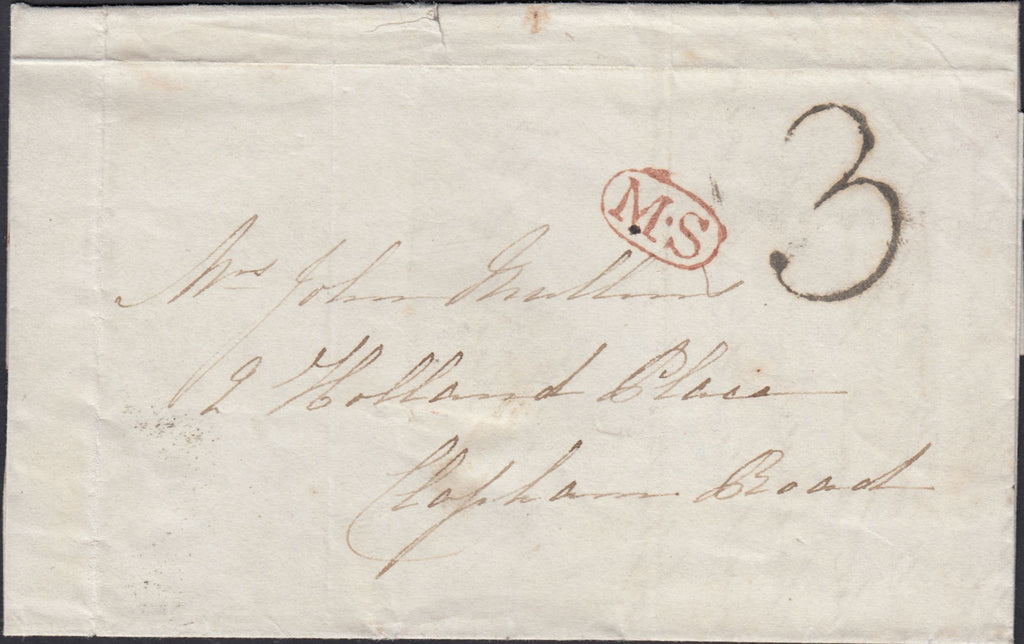 3
M·S
Mrs John Mullens
2 Holland Place
Clapham Road